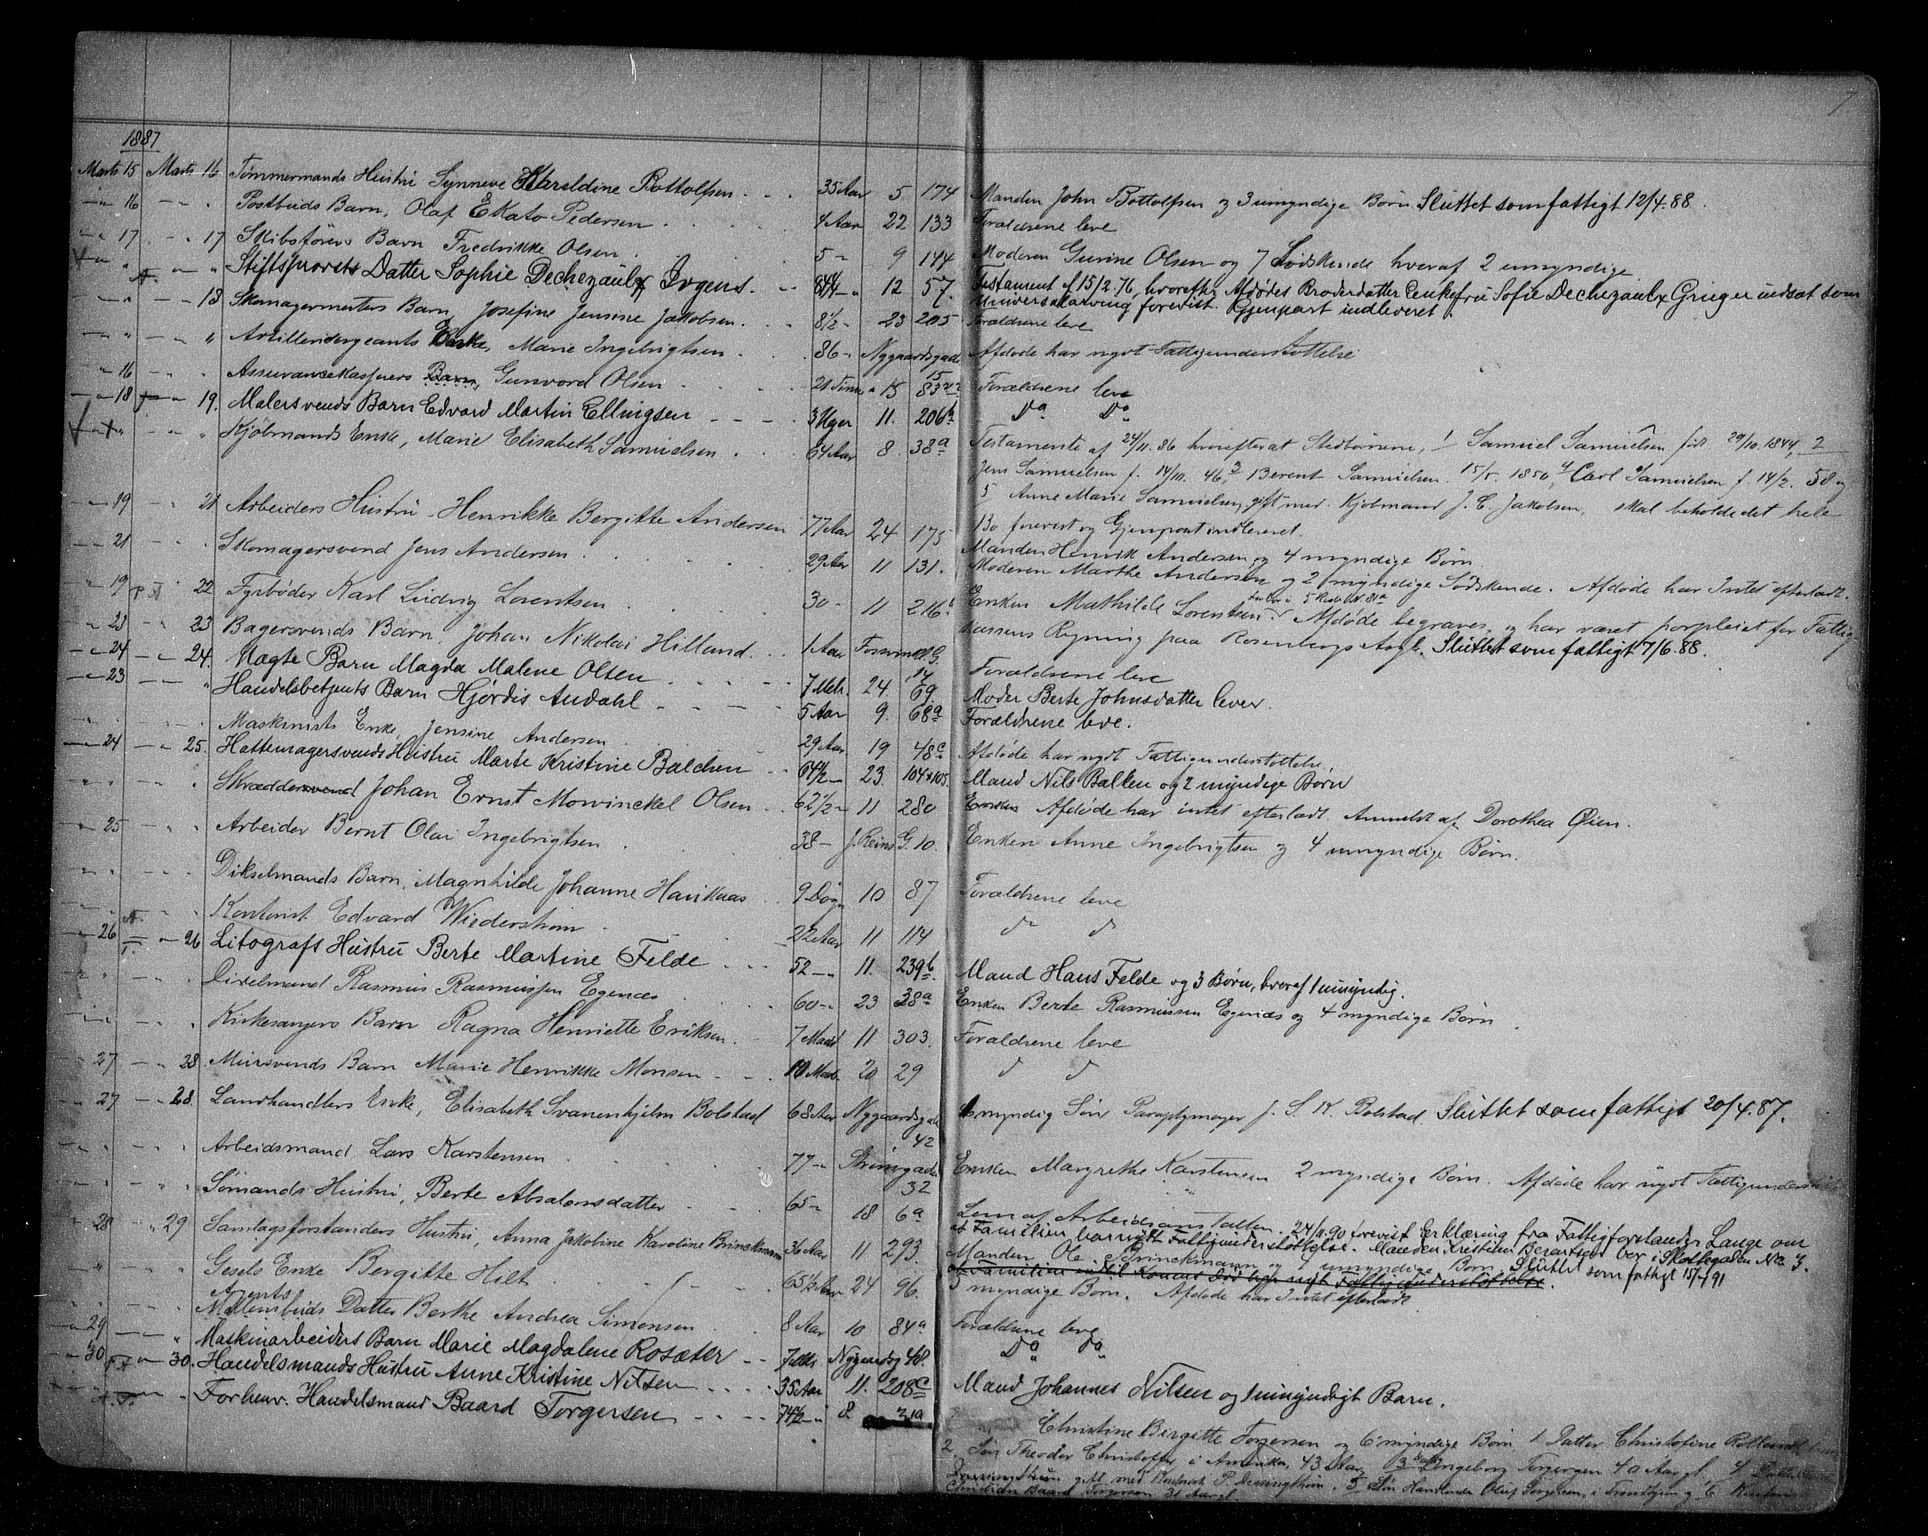 7
1887
Marts 15 Marts 16 Tømmermands Hustru Synneve Haraldine Bottolfsen 35 Aar 5 174 Manden John Bottolfsen og 3 umyndige Børn Sluttet som fattigt 12/4.88.
16 Postbuds Barn, Olaf Ekato Pedersen 4 Aar 22 133 Forældrene leve
17 17 Skibsførers Barn Fredrikke Olsen 5 9 144 Moderen Gurine Olsen og 7 Sødskende hvoraf 2 umyndige
Stiftsprovsts Datter Sophie Dechezaulx Irgens 84 12 57. Testament af 15/2.76, hvorefter Afdødes Broderdatter Enkefru Sofie Dechezaulx Grieger indsat som
Universalarving forevist. Gjenpart indleveret.
18 Skomagermesters Barn Josefine Jensine Jakobsen 8 1/2 23 205 Forældrene leve
Artillerisergeants Enke, Marie Ingebrigtsen 86 Nygaardsgade 15 Afdøde har nydt Fattigunderstøttelse
16 Assurancekasserers Barn, Gunvord Olsen 21 Timer 15 83 Forældrene leve
18 19. Malersvends Barn Edvard Martin Ellingsen 3 Uger 11. 206 b Do Do
Kjøbmands Enke, Marie Elisabeth Samuelsen 64 Aar 8 38a Testamente af 24/11.86 hvorefter at Stedbørnene, 1 Samuel Samuelsen født 29/10.1844, 2
Jens Samuelsen f. 14/10. 46, 3 Berent Samuelsen 15/5. 1850, 4 Carl Samuelsen f. 14/2. 58 og
5 Anne Marie Samuelsen, gift med Kjøbmand J. C. Jakobsen, skal beholde det hele
Bo forevist og Gjenpart indleveret.
19 21 Arbeiders Hustru Henrikke Bergitte Andersen 77 Aar 24 175 Manden Henrik Andersen og 4 myndige Børn
21 Skomagersvend Jens Andersen 29 Aar 11 131. Moderen Marthe Andersen og 2 myndige Sødskende. Afdøde har Intet efterladt.
19 22 Fyrbøder Karl Ludvig Lorentsen 30 11 216 b Enken Mathilde Lorentsen. Afdøde begraves og har været forpleiet for Fattig
kassens Regning paa Rosenbergs Asyl. Sluttet som fattigt 7/6.88.
23 23 Bagersvends Barn, Johan Nikolai Hilland 1 Aar 14 Forældrene leve
24 24. Nægte Barn Magda Malene Olsen 7 Mdr. 24 69 Moder Berte Johnsdatter lever
23 Handelsbetjents Barn Hjørdis Andahl 5 Aar 9. 68a Forældrene leve.
Maskinists Enke, Jensine Andersen 29 Aar 19 48c Afdøde har nydt Fattigunderstøttelse
24 25. Hattemagersvends Hustru Marte Kristine Balchen 64 1/2 23. 104 x 105. Mand Nils Balken og 2 myndige Børn
Skræddersvend Johan Ernst Mowinckel Olsen 62 1/2 11 280 Afdøde har intet efterladt. Anmeldt af Dorothea Øien.
25 Arbeider Bernt Olai Ingebrigtsen 38 J. Reins G. 10. Enken Anne Ingebrigtsen og 4 umyndige Børn.
Dikselmands Barn, Magnhilde Johanne Haukaas 9 Døgn 10 87 Forældrene leve
Kontorist Edvard Wiederstrøm 22 Aar 11 114 do do
26 26 Litografs Hustru Berte Martine Felde 52 11. 239 b. Mand Hans Felde og 3 Børn, hvoraf 1 umyndig.
Dixelmand Rasmus Rasmussen Egenæs 60 23 38a Enken Berte Rasmussen Egenæs og 4 myndige Børn.
Kirkesangers Barn Ragna Henriette Eriksen 7 Maad 11 303. Forældrene leve
27 28. Mursvends Barn Marie Henrikke Monsen 10 Maad 20 29 do do
27 28. Landhandlers Enke, Elisabeth Svanenhjelm Bolstad 68 Aar Nygaardsgade 42 1 myndig Søn Paraplymager J. S. M. Bolstad Sluttet som fattigt 20/4.87.
Arbeidsmand Lars Karstensen 77 32 Enken Margrethe Karstensen 2 myndige Børn. Afdøde har nydt Fattigunderstøt
Sømands Hustru, Berte Absalonsdatter 65 18 6a Lem af Arbeidsanstalten. 24/11.90 forevist Erklæring fra Fattigforstander Lange om
at Familien har nydt Fattigunderstøttelse. Manden Kristian Berentsen bor i Skottegaden No 3.
28 29 Samlagsforstanders Hustru, Anna Jakobine Karoline Brinckmann 36 Aar 11 293. Manden Ole Brinckmann og 4 umyndige Børn. Sluttet som fattigt 15/4 91
Gjesels Enke Bergitte Hilt 65 1/2 Aar 24 96. 5 myndige Børn. Afdøde har Intet efterladt
Agents
Møllembuds Datter Berthe Andrea Simonsen 8 Aar 10 84a Forældrene leve
29 Maskinarbeiders Barn Marie Magdalene Rosæter 7 Nygaardsg 48. Do Do
30 30. Handelsmands Hustru Anne Kristine Nilsen 35 Aar 11. 208c Mand Johannes Nilsen og 1 umyndigt Barn.
Forhenv. Handelsmand Baard Torgersen 74 1/2 8. 21a
Christine Birgitte Torgersen og 6 myndige Børn 1 Datter Christofine Rolland
2 Søn Theodor Christoffer, i Amerika, 43 Aar, 3 Ingeborg Torgersen 40 Aar gl, 4 Datter
gift med P. Denningthun. 5 Søn Handlende Oluf Torgersen, i Trondhjem og 6
Christian Baard Torgersen 31 Aar gl.